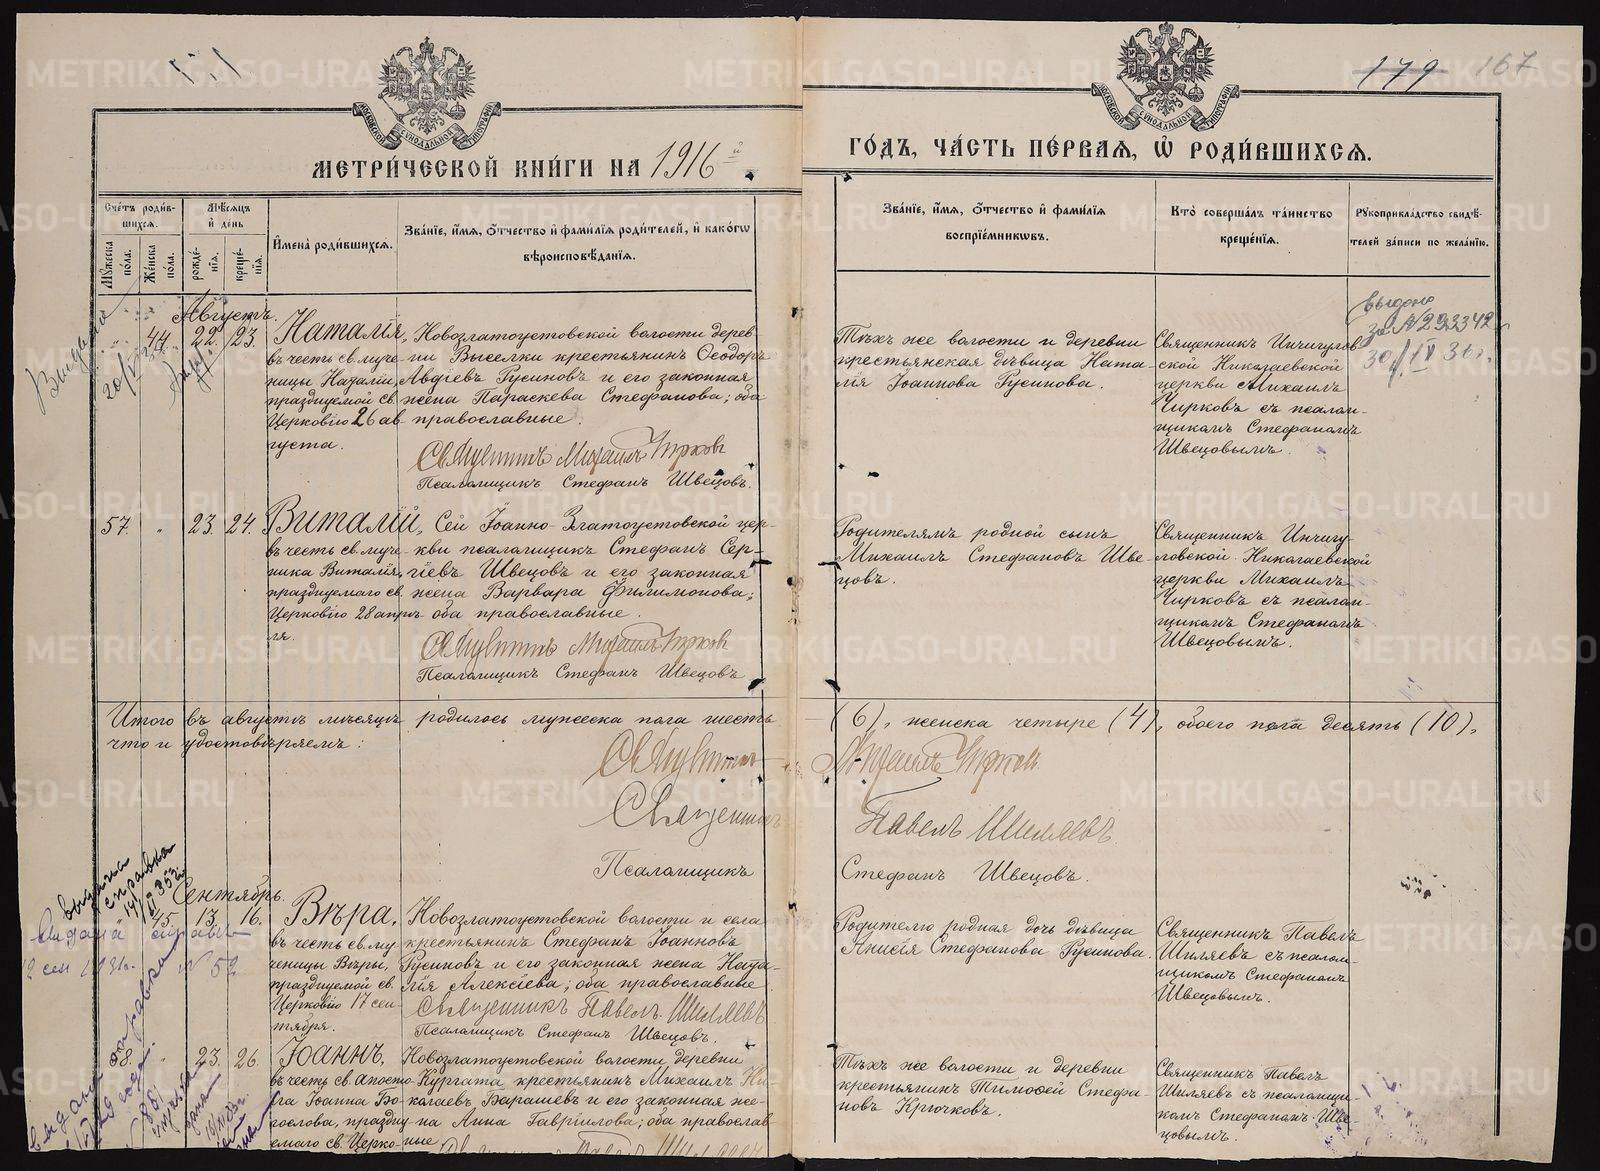 179 167
МЕТРИ́ЧЕСКОЙ КНИ́ГИ НА 1916 й
ГО́ДЪ, ЧА́СТЬ ПЕ́РВАЯ, Ѡ҆ РОДИ́ВШИХСѦ.
Сче́тъ роди́вшихсѧ.
Мꙋ́жеска по́ла.
Же́нска по́ла.
Мѣ́сѧцъ и҆ день
рожде́нїѧ.
креще́нїѧ.
И҆мена̀ роди́вшихсѧ.
Зва́нїе, и҆́мѧ, ѻ҆́тчество и҆ фамі́лїѧ роди́телей, и҆ како́гѡ
вѣроисповѣ́данїѧ.
Зва́нїе, и҆́мѧ, ѻ҆́тчество и҆ фамі́лїѧ
воспрїе́мникѡвъ.
Кто̀ соверша́лъ та́инство
креще́нїѧ.
Рꙋкоприкла́дство свидѣ́-
телей за́писи по жела́нїю.
Августъ.
44. 22. 23.
Наталія,
въ честь св. муче-
ницы Наталіи,
празднуемой св.
Церковію 26 ав-
густа.
Новозлатоустовской волости дерев-
ни Выселки крестьянинъ Ѳеодоръ
Авдіевъ Русиновъ и его законная
жена Параскева Стефанова; оба
православные.
Священникъ Михаилъ Чирковъ
Псаломщикъ Стефанъ Швецовъ.
Тѣхъ же волости и деревни
крестьянская дѣвица Ната-
лія Іоаннова Русинова.
Священникъ Инчигов-
ской Николаевской
церкви Михаилъ
Чирковъ съ псалом-
щикомъ Стефаномъ
Швецовымъ.
Выдано
за № 293342
30/IV 36г.
57. " 23. 24.
Виталій,
въ честь св. муче-
ника Виталія,
празднуемаго св.
Церковію 28 апрѣ-
ля.
Сей Іоанно-Златоустовской цер-
кви псаломщикъ Стефанъ Сер-
гіевъ Швецовъ и его законная
жена Варвара Филимонова;
оба православные.
Священникъ Михаилъ Чирковъ
Псаломщикъ Стефанъ Швецовъ
Родителямъ родной сынъ
Михаилъ Стефановъ Шве-
цовъ.
Священникъ Инчигу-
ловской Николаевской
церкви Михаилъ
Чирковъ съ псалом-
щикомъ Стефаномъ
Швецовымъ.
Итого въ августѣ мѣсяцѣ родилось мужеска пола шесть (6), женска четыре (4), обоего пола десять (10),
что и удостовѣряемъ:
Священникъ Михаилъ Чирковъ
Священникъ Павелъ Шиляевъ
Псаломщикъ Стефанъ Швецовъ.
Сентябрь.
45. 13. 16.
Вѣра,
въ честь св. му-
ченицы Вѣры,
празднуемой св.
Церковію 17 сен-
тября.
Новозлатоустовской волости и села
крестьянинъ Стефанъ Іоанновъ
Русиновъ и его законная жена Ната-
лія Алексіева; оба православные
Священникъ Павелъ Шиляевъ
Псаломщикъ Стефанъ Швецовъ.
Родителю родная дочь дѣвица
Анисія Стефанова Русинова.
Священникъ Павелъ
Шиляевъ съ псалом-
щикомъ Стефаномъ
Швецовымъ.
58. " 23. 26.
Іоаннъ,
въ честь св. апосто-
ла Іоанна Бо-
гослова, праздну-
емаго св. Церко-
Новозлатоустовской волости деревни
Кургата крестьянинъ Михаилъ Ни-
колаевъ Барашевъ и его законная же-
на Анна Гавріилова; оба православ-
ные
Священникъ Павелъ Шиляевъ
Тѣхъ же волости и деревни
крестьянинъ Тимоѳей Стефа-
новъ Крючковъ.
Священникъ Павелъ
Шиляевъ съ псаломщи-
комъ Стефаномъ Шве-
цовымъ.
METRIKI.GASO-URAL.RU